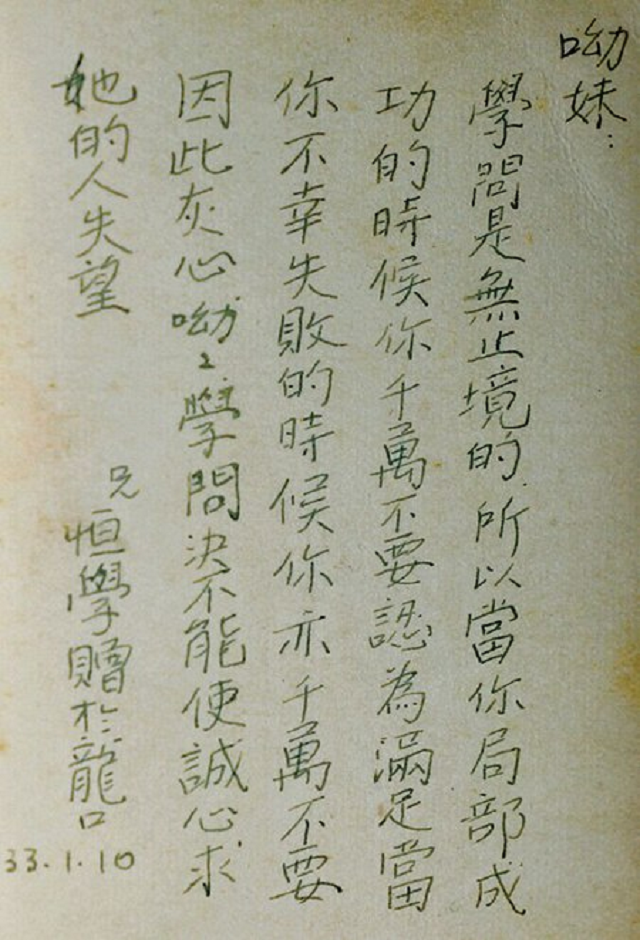 呦妹：
學問是無止境的所以當你局部成
功的時候你千萬不要認為滿足當
你不幸失敗的時候你亦千萬不要
因此灰心呦々學問決不能使誠心求
她的人失望
兄恒學贈於龍口
33.1.10